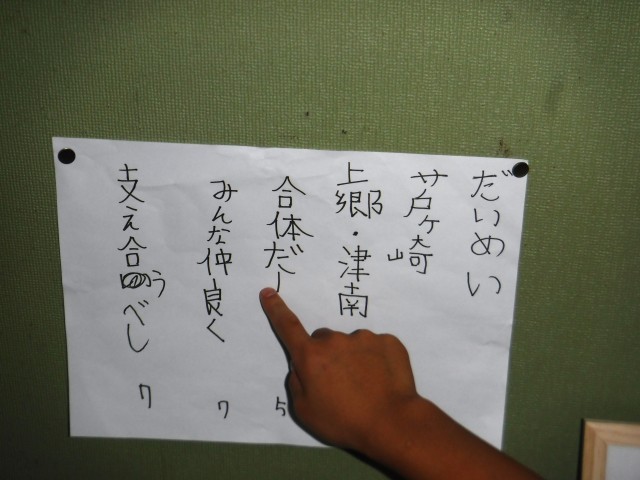 だいめい
芦ヶ崎
上郷・津南
合体だー
5
みんな仲良く
7
支え合うべし
7